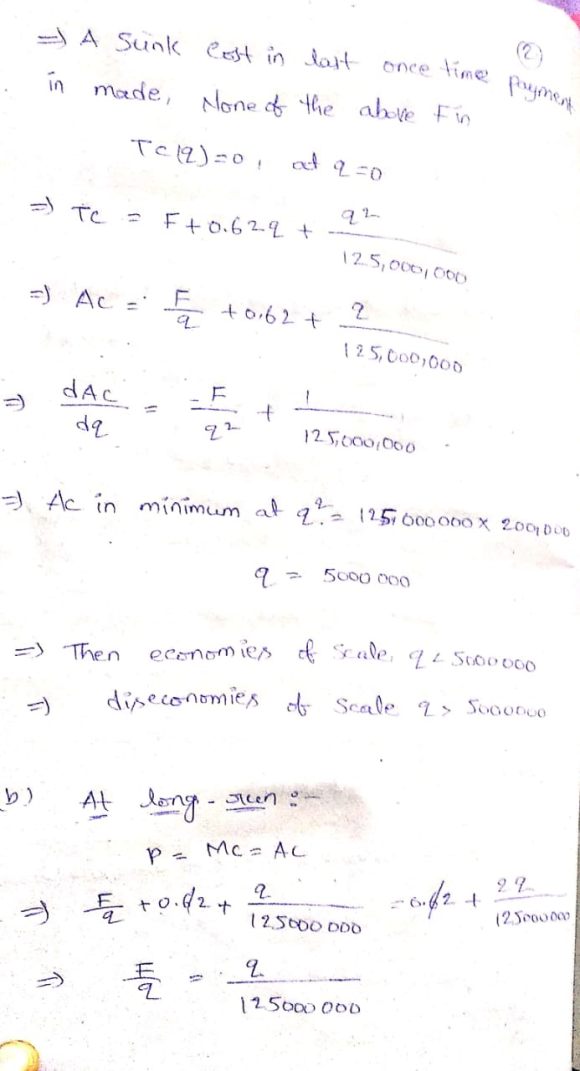 ②
⇒ A Sunk Cost in last once time Payment
in made, None of the above F in
TC(q)=0, at q=0
⇒ TC = F+0.62q + q²/125,000,000
⇒ AC = F/q +0.62 + q/125,000,000
⇒ dAC/dq = -F/q² + 1/125,000,000
⇒ AC in minimum at q² = 125,000000 x 200,000
q = 5000 000
⇒ Then economies of Scale, q < 5000000
⇒ diseconomies of Scale q > 5000000
b) At long-run :-
P = MC = AC
⇒ F/q +0.62 + q/125000 000 = 0.62 + 2q/125000000
⇒ F/q = q/125000 000